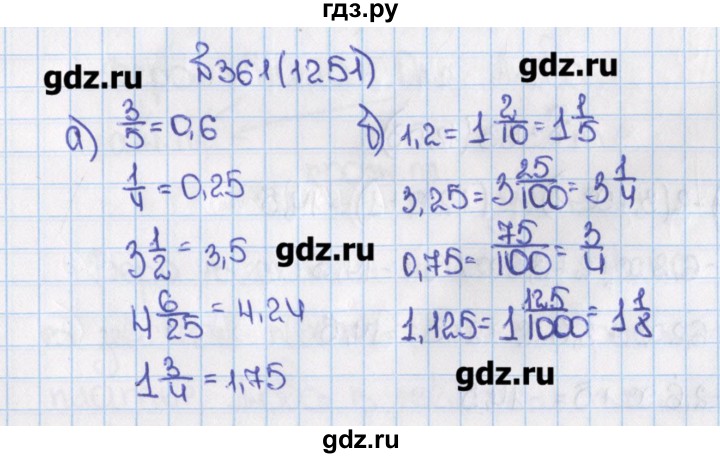 гдз.ру
№361(1251)
gdz.ru
gdz.ru
а) 3/5 = 0,6
1/4 = 0,25
3 1/2 = 3,5
4 6/25 = 4,24
1 3/4 = 1,75
gdz.ru
б) 1,2 = 1 2/10 = 1 1/5
3,25 = 3 25/100 = 3 1/4
0,75 = 75/100 = 3/4
1,125 = 1 125/1000 = 1 1/8
gdz.ru
gdz.ru